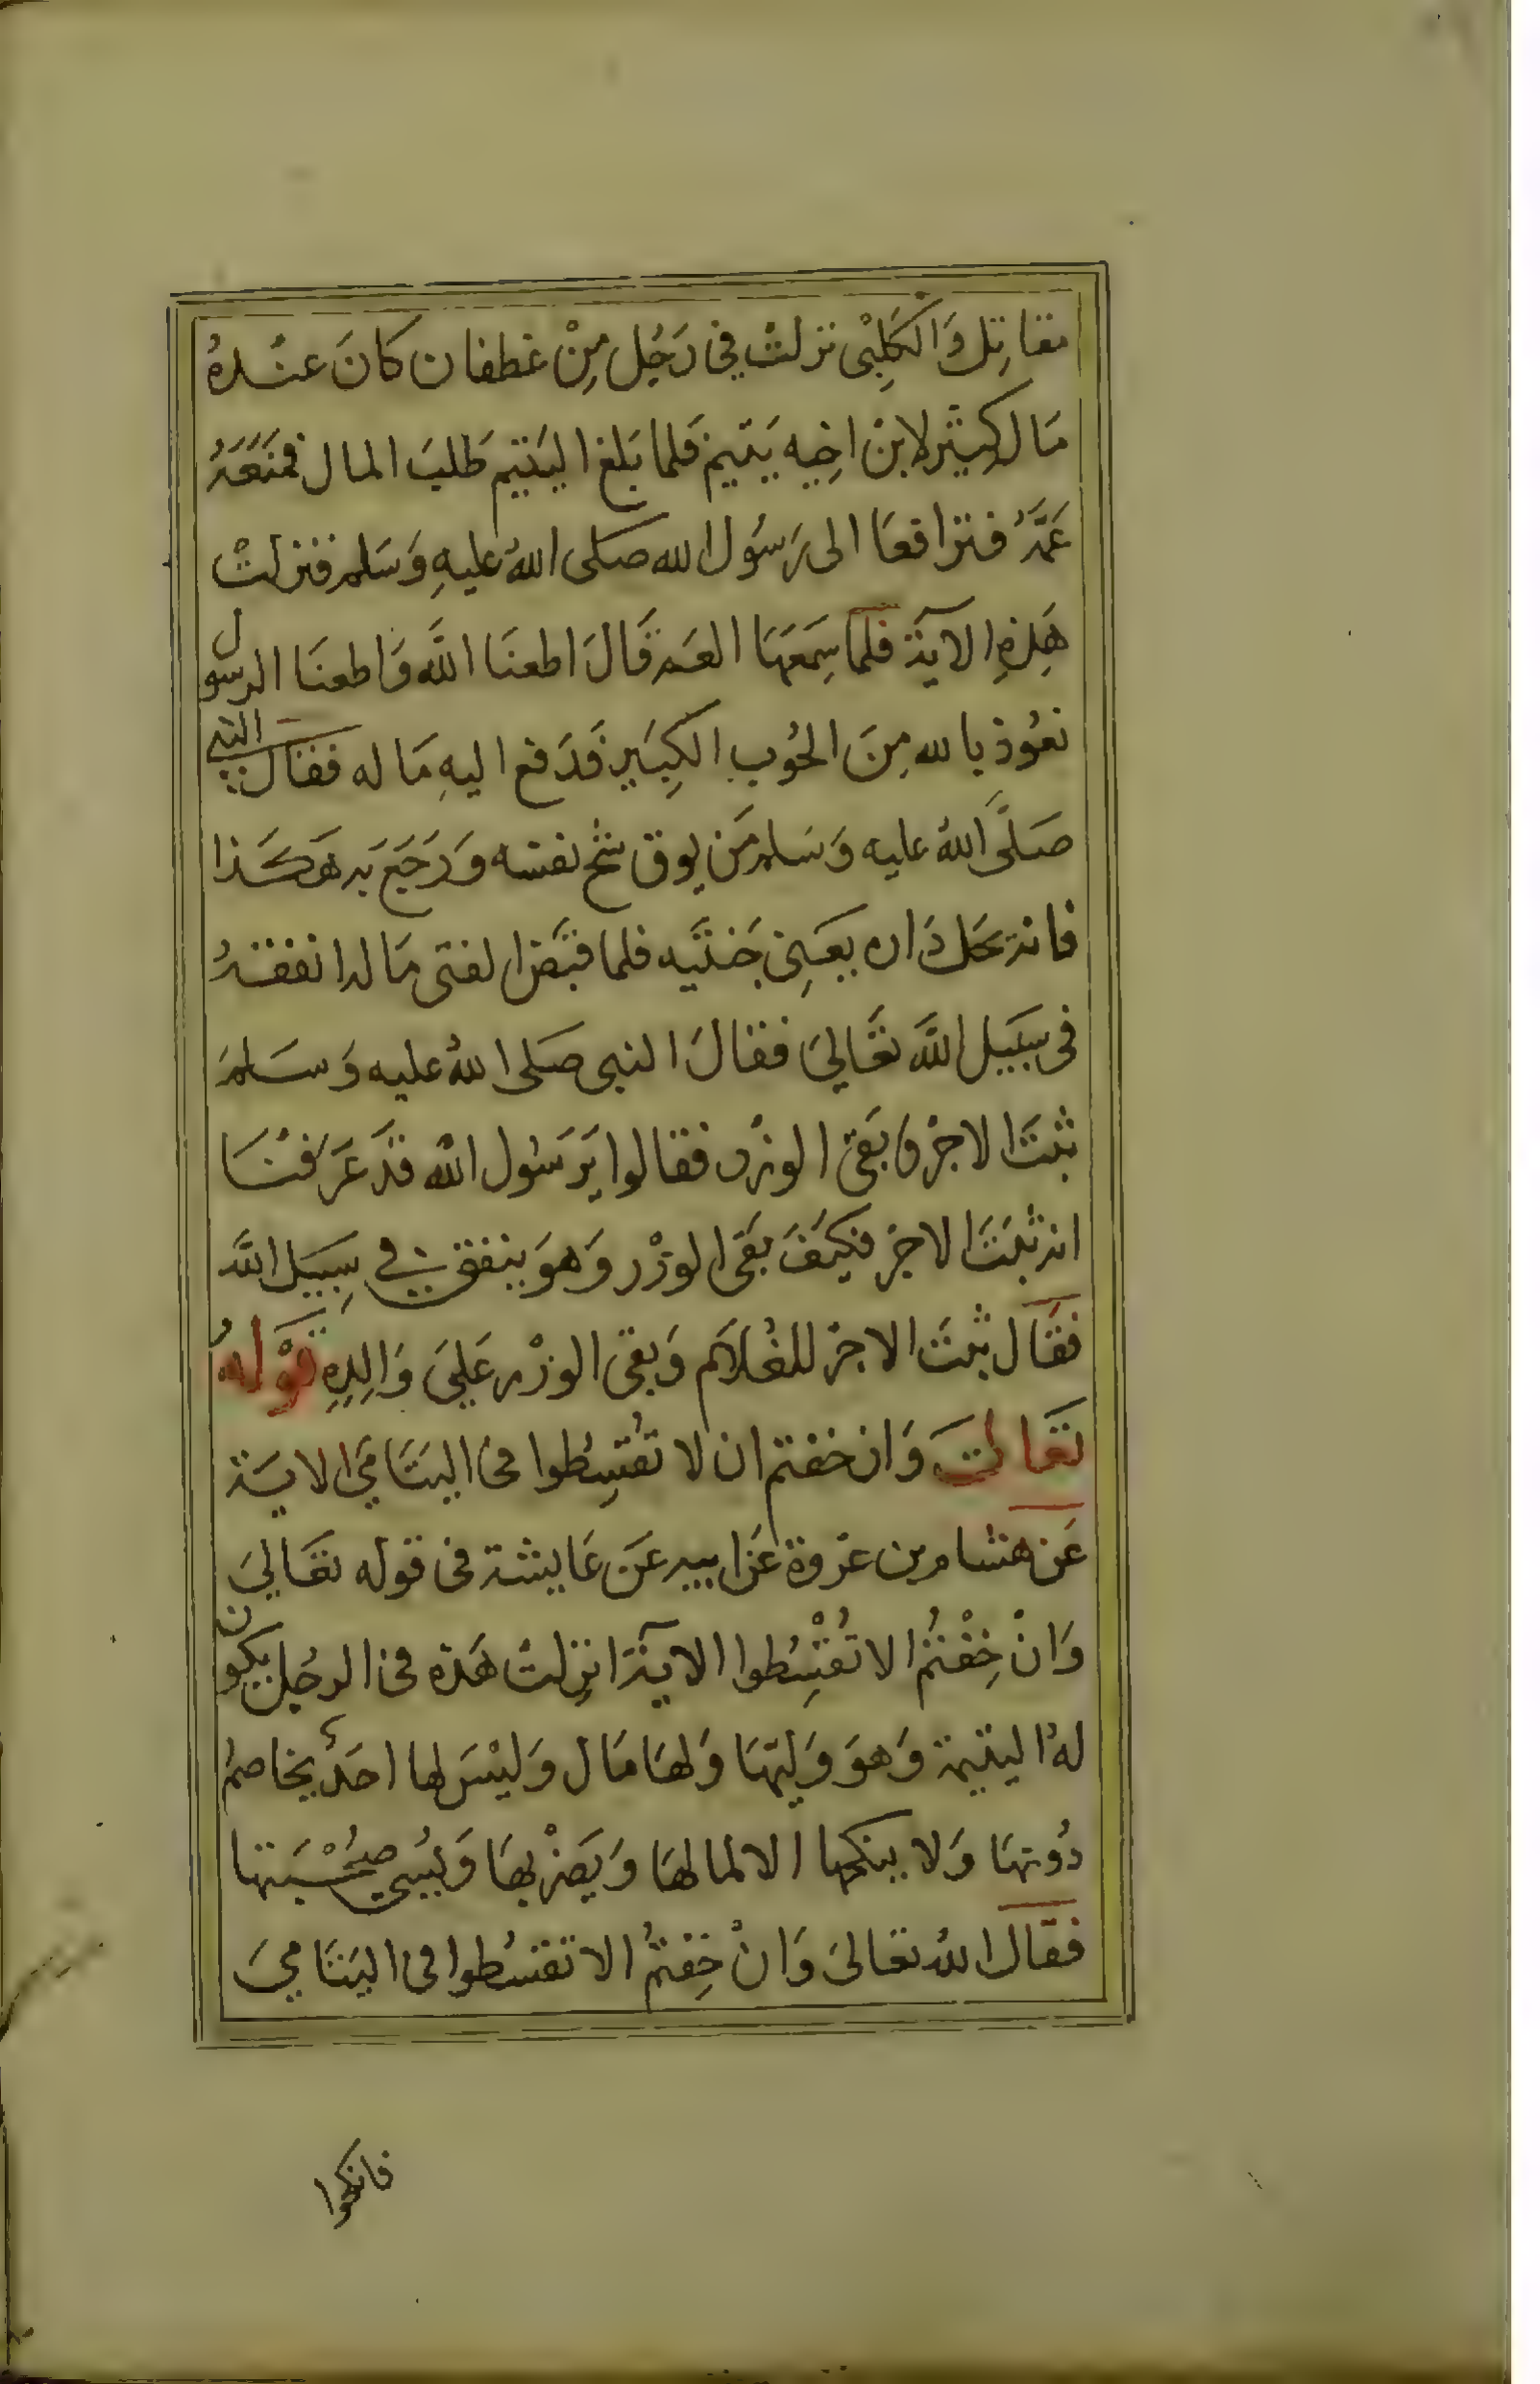 مقاتِل وَالكَلِبْى نزلتْ فِى رَجُل مِنْ غطفان كانَ عنْدهُ
مَال كِثير لابن اخِيه يَتيم فلما بَلغ اليَتيم طَلبَ المال فمنَعَهُ
عَمَّهُ فترافعَا الى رَسُول الله صَلى اللهُ عليهِ وَسَلم فنزلتْ
هَذِهِ الآية فلما سِمَعَهَا العَم قَالَ اطعنَا اللَّه وَاطعنَا الرسول
نعُوذ بالله مِنَ الحُوب الكِبَير فَدَفع اليهِ مَا له فقال النبى
صَلَّى اللهُ عليه وَسَلم مَن يوق شح نفسه وَرَجَعَ به هَكَذا
فانه يحَل دَاره يعَنِى جَنتَّه فلما قبَّض الفتى مَاله انفقهُ
فى سبَيل اللَّه تعَّالىَ فقالَ النبى صَلى اللهُ عليه وَسَلمَ
ثبتَ الاجرْ وبَقىَ الوزْر فقالوا يَرَسُول اللّه قدَ عَرَفنَا
انه ثبتَ الاجرْ فكيَفَ بَقىَ الوزْر وَهوَ ينفق فِى سِبَيل اللَّه
فقَال ثبتَ الاجرْ للغُلاَم وَبقىَ الوزْر عَلىَ وَالِدِهِ قَوْلهُ
تعَالىَ وَان خفتم ان لا تقُسِطُوا فى اليَتَامَى الايَة
عَن هشام بن عرْوة عَن ابيه عَن عَايشة فى قوله تعَالىَ
وَانْ خِفْتُمْ الا تُقْسِطُوا الآية انزِلتْ هَذه فى الرجُل يكون
لهُ اليتيمة وَهوَ وَليّهَا وَلهَا مَال وَليْسَ لها احَدُ يخاصمُ
دُونهَا وَلا ينكحها الا لمالهَا وَيَضرْبهَا وَيُسِئ صُحْبَتها
فقَالَ اللهُ تعَالىَ وَانْ خِفتمُْ الا تقسُطوا فى اليَتَامىَ
فانكحوا